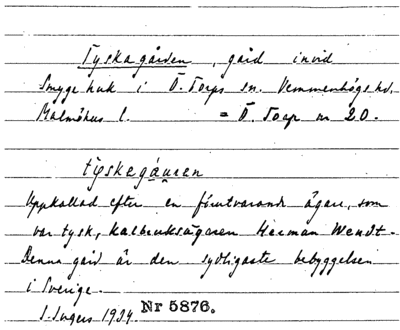 Tyskagården, gård invid
Smygehuk i Ö. Torps sn. Vemmenhögs hd.
Malmöhus l. = Ö. Torp nr 20.
tyskegåuren
Uppkallad efter en förutvarande ägare, som
var tysk, kalbruksägaren Herman Wendt.
Denna gård är den sydligaste bebyggelsen
i Sverige.
S. Ingers 1934. Nr 5876.